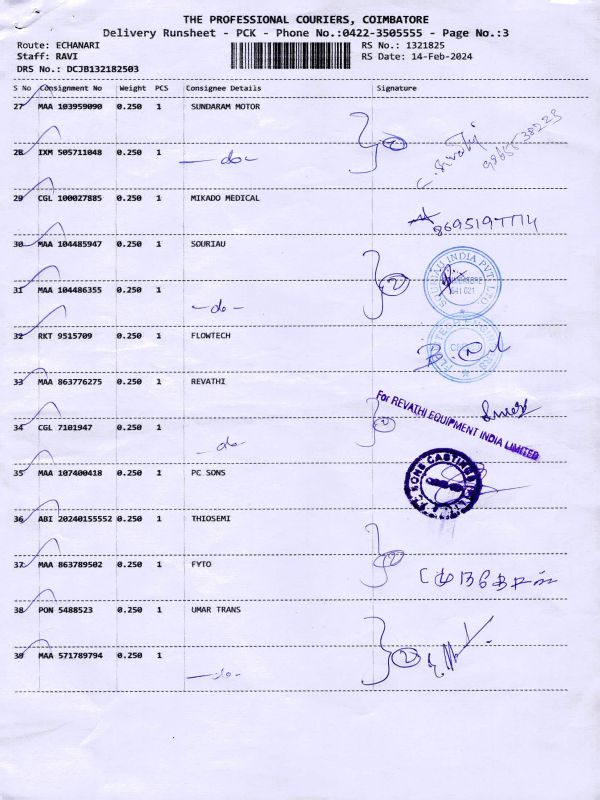 THE PROFESSIONAL COURIERS, COIMBATORE
Delivery Runsheet - PCK - Phone No.:0422-3505555 - Page No.:3
Route: ECHANARI RS No.: 1321825
Staff: RAVI RS Date: 14-Feb-2024
DRS No.: DCJB132182503
S No Consignment No Weight PCS Consignee Details Signature
27 MAA 103959090 0.250 1 SUNDARAM MOTOR
28 IXM 505711048 0.250 1 -do- 2
29 CGL 100027885 0.250 1 MIKADO MEDICAL
30 MAA 104485947 0.250 1 SOURIAU
31 MAA 104486355 0.250 1 -do- 2
SOURIAU INDIA PVT. LTD
641 021
32 RKT 9515709 0.250 1 FLOWTECH
33 MAA 863776275 0.250 1 REVATHI
For REVATHI EQUIPMENT INDIA LIMITED
34 CGL 7101947 0.250 1 -do- 2
35 MAA 107400418 0.250 1 PC SONS
SONS CASTINGS
36 ABI 20240155552 0.250 1 THIOSEMI
37 MAA 863789502 0.250 1 FYTO 2
38 PON 5488523 0.250 1 UMAR TRANS
39 MAA 571789794 0.250 1 -do- 2